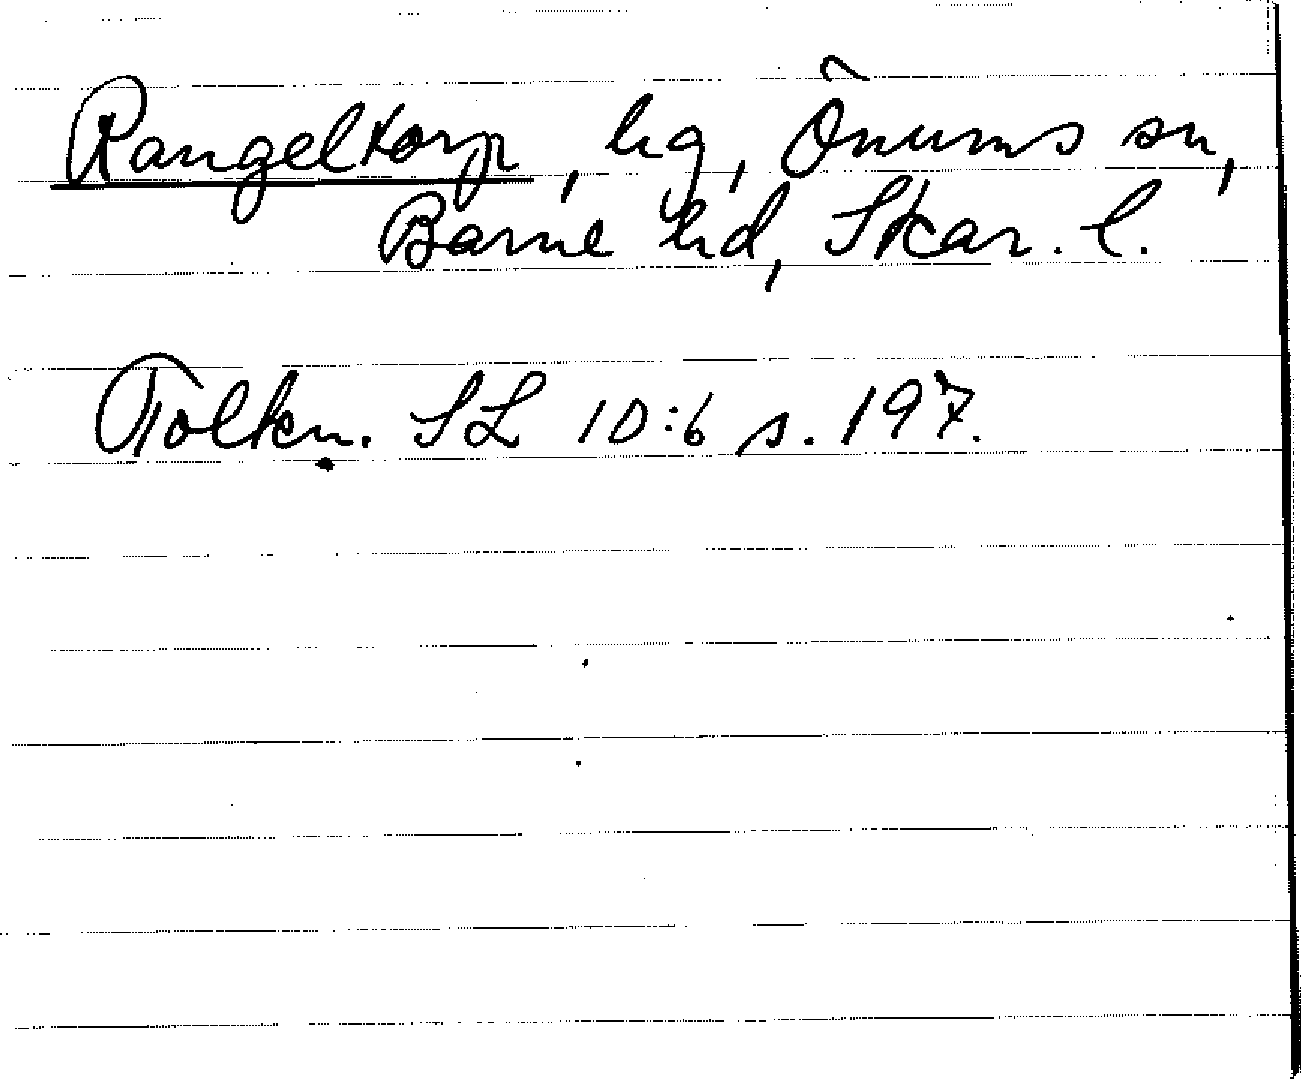 Rangeltorp, hg, Önums sn,
Barne hd, Skar. l.
Tolkn. SL 10:6 s. 197.